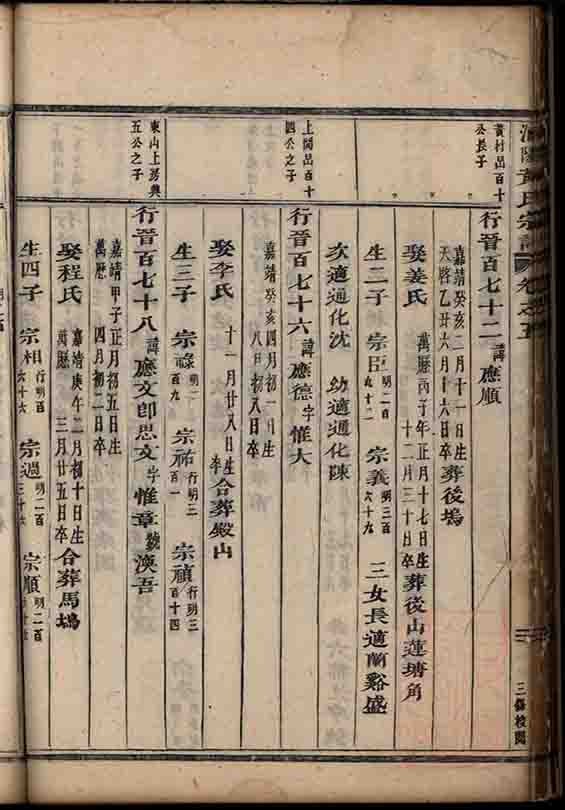 黃氏宗譜 卷之五
三修校閱
黃村出百十
公長子
行晉百七十二諱應順
嘉靖癸亥二月十一日生
天啓乙丑六月十六日卒葬後塢
娶姜氏 萬曆丙子年正月十七日生
十二月三十日卒葬後山蓮塘角
生二子 宗臣明二百九十二 宗義明三百六十九 三女長適蘭谿盛
次適通化沈 幼適通化陳
上閣出百十
四公之子
行晉百七十六諱應德字惟大
嘉靖癸亥四月初一日生
八月初八日卒
娶李氏 十一月廿八日生卒合葬殿山
生三子 宗祿明二百九 宗祐行明三百一 宗禎行明三百十四
東山上房與
五公之子
行晉百七十八諱應文即思文字惟章號漢吾
嘉靖甲子正月初五日生
萬曆 四月初二日卒
娶程氏 嘉靖庚午二月初十日生
萬曆 三月廿五日卒合葬馬塢
生四子 宗相行明百六十六 宗週明二百三十六 宗順明二百